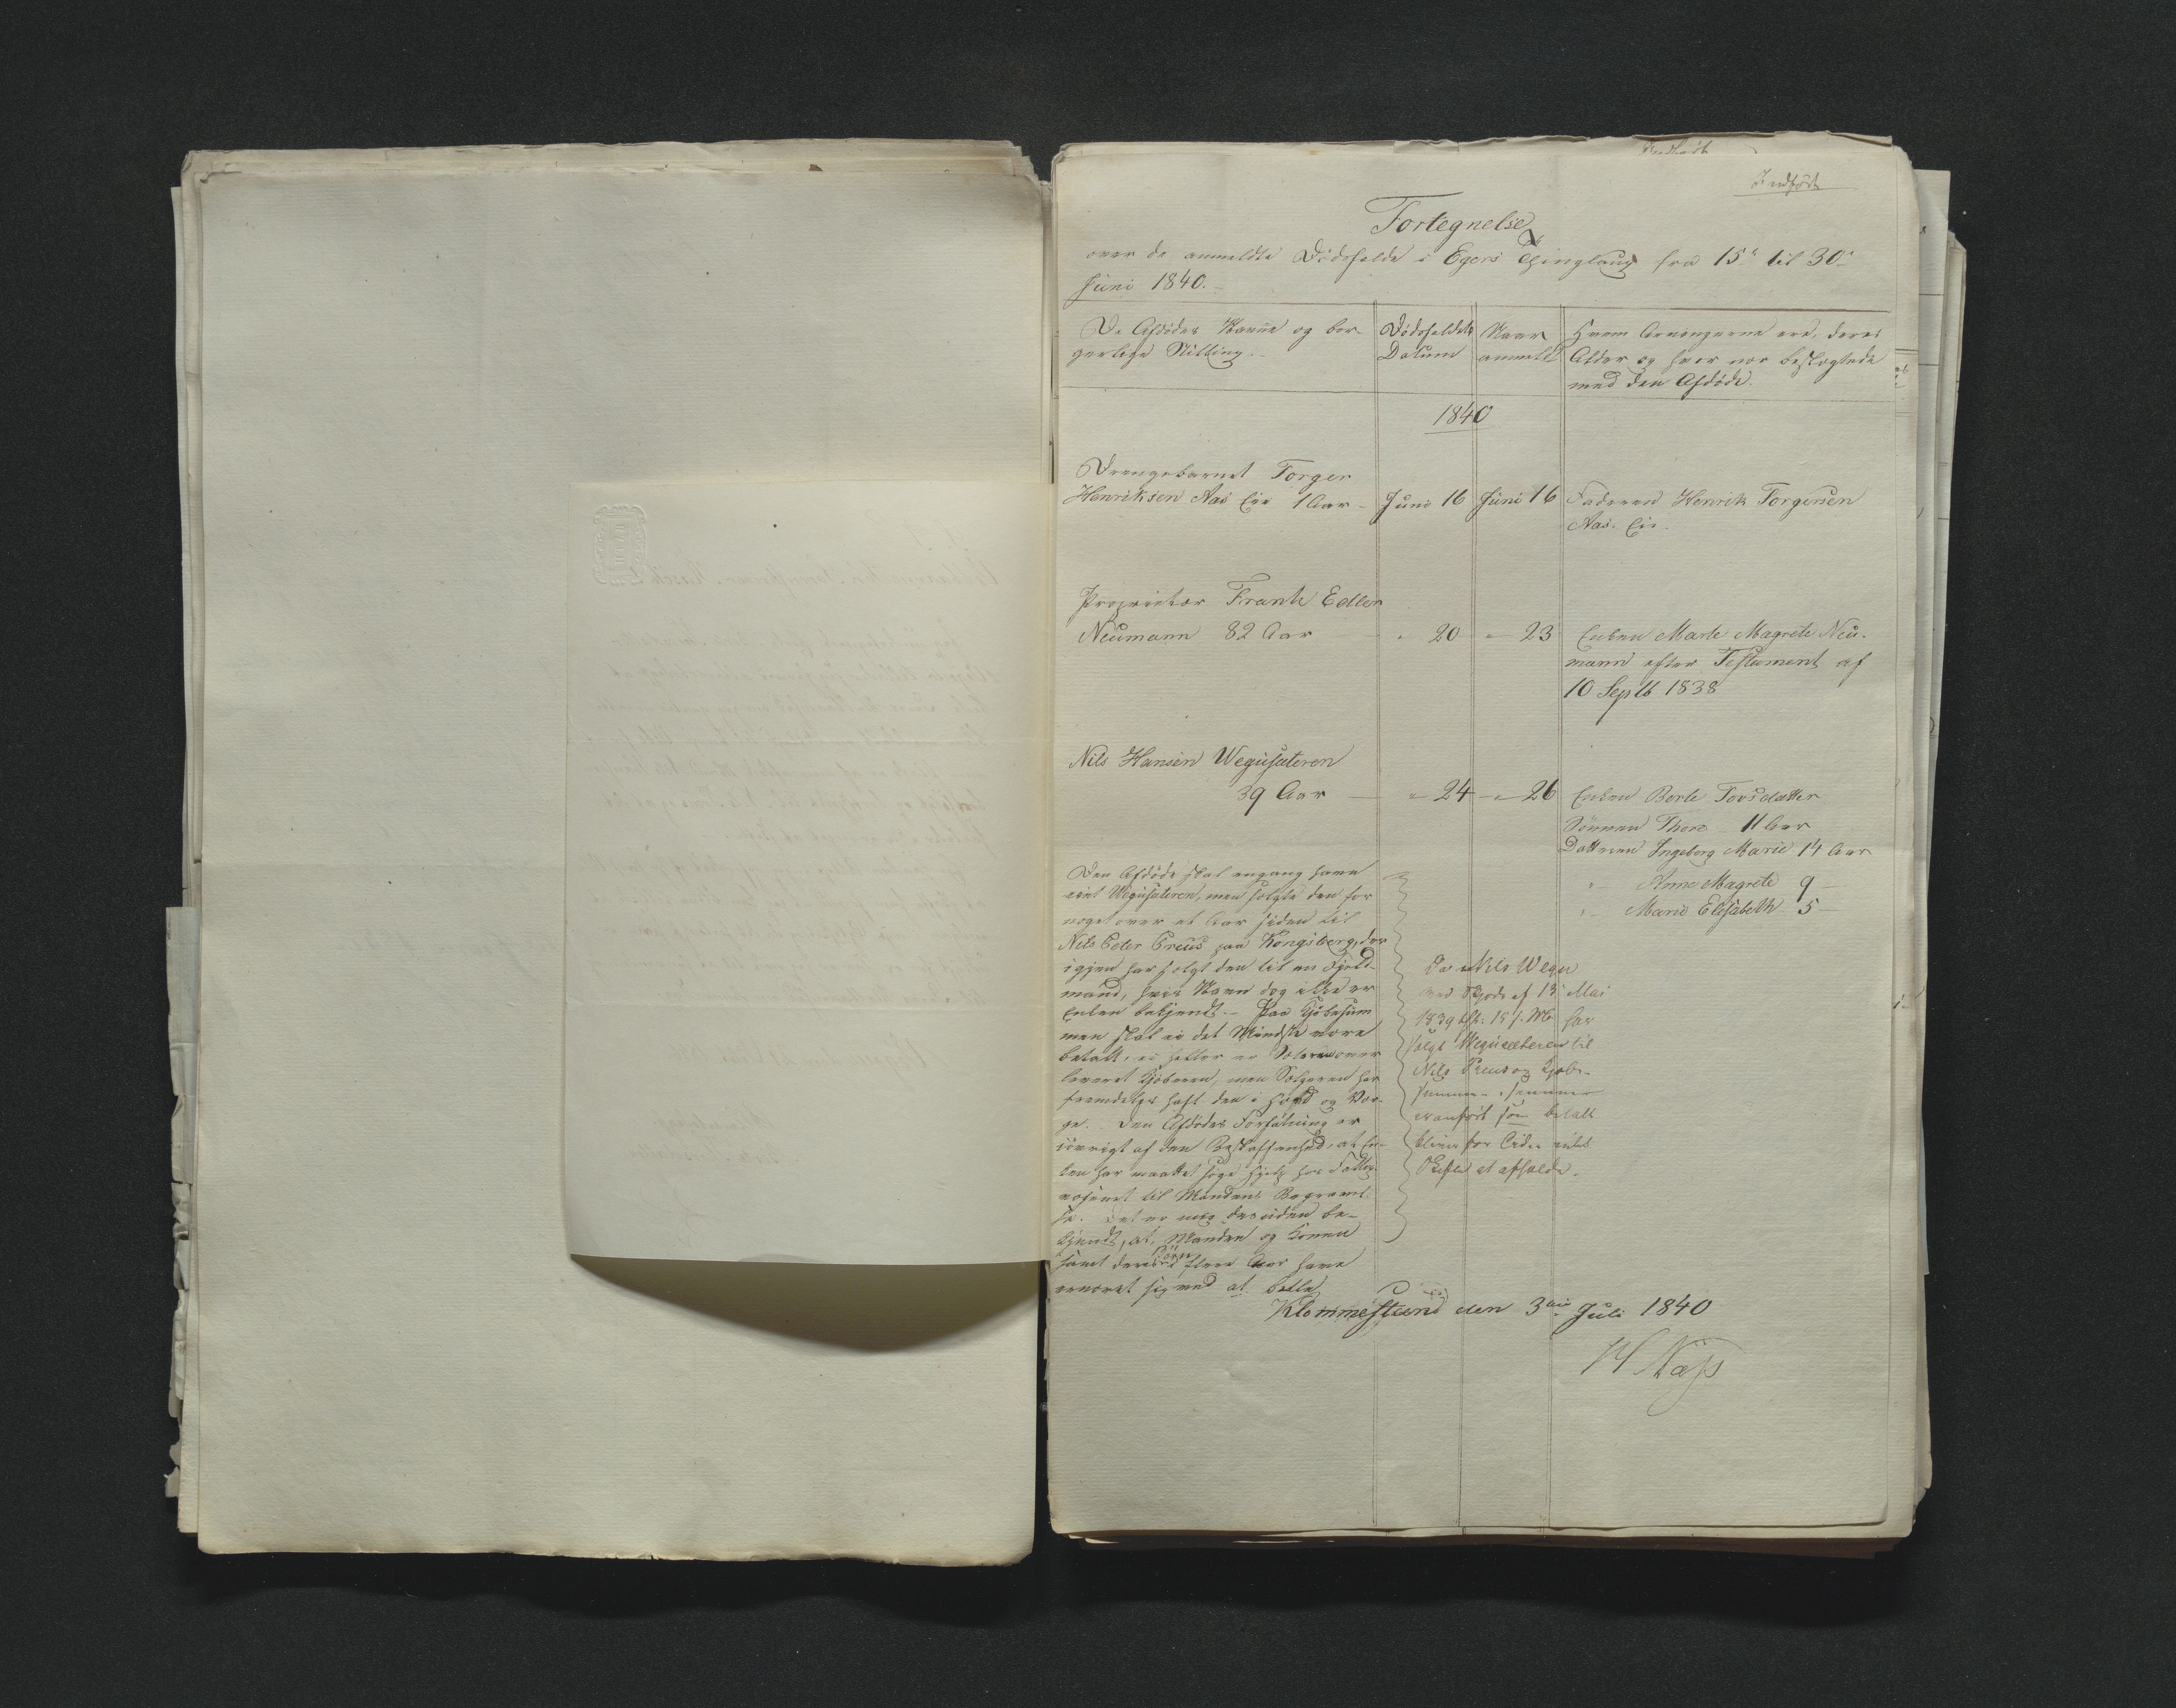 Indført
Fortegnelse
over de anmeldte Dødsfalde i Egers Thinglaug fra 15de til 30te
Juni 1840.
De Afdødes Navne og bor-
gerlige Stilling.
Dødsfaldets
Datum
Naar
anmeldt
Hvem Arvingerne ere, deres
Alder og hvor nær beslægtede
med den Afdøde.
1840
Drengebarnet Torger
Henriksen Aas Eie 1 Aar -
Juni 16
Juni 16
Faderen Henrik Torgersen
Aas Eie.
Proprietær Frants Edler
Neumann 82 Aar
" 20
" 23
Enken Marte Magrete Neu-
mann efter Testament af
10 Septb 1838
Nils Hansen Wegusæteren
39 Aar
" 24
" 26
Enken Berte Tovsdatter
Sønnen Thore 11 Aar
Datteren Ingeborg Marie 14 Aar
" Anne Magrete 9 -
" Marie Elisabeth 5
Den Afdøde skal engang have
eiet Wegusæteren, men solgte den for
noget over et Aar siden til
Nils Peder Preus paa Kongsberg, der
igjen har solgt den til en Fjeld-
mand, hvis Navn dog ikke er
Enken bekjendt. - Paa Kjøbesum
men skal ei det Mindste være
betalt, ei heller er Sæteren over
leveret Kjøberen, men Sælgeren har
fremdeles haft den i Hævd og Vær-
ge. Den Afdødes Forfatning er
iøvrigt af den Beskaffenhed, at En-
ken har maattet søge Hjelp hos Fattig-
væsenet til Mandens Begravel-
se. Det er mig desuden be-
kjendt, at Manden og Konen
samt deres Børn i flere Aar have
ernæret sig ved at betle
Da Nils Wegu
ved Skjøde af 13 Mai
1839 har
solgt Wegusæteren til
Nils Preus og Kjøbe-
summen
er anført som betalt
bliver for Tiden intet
Skifte at afholde.
Klommesteen den 3die Juli 1840
H Næss